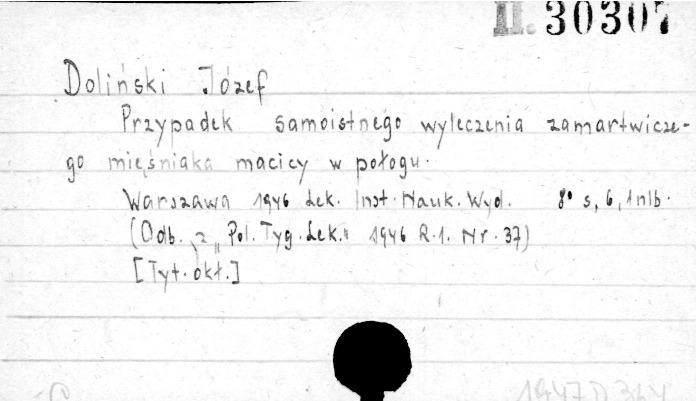 II. 30307
Doliński Józef
Przypadek samoistnego wyleczenia zamartwicze-
go mięśniaka macicy w połogu.
Warszawa 1946 Lek. Inst. Nauk. Wyd. 8° s, 6, 1 nlb.
(Odb. z „Pol. Tyg. Lek." 1946 R.1. Nr. 37)
[Tyt. okł.]
1947 D 344